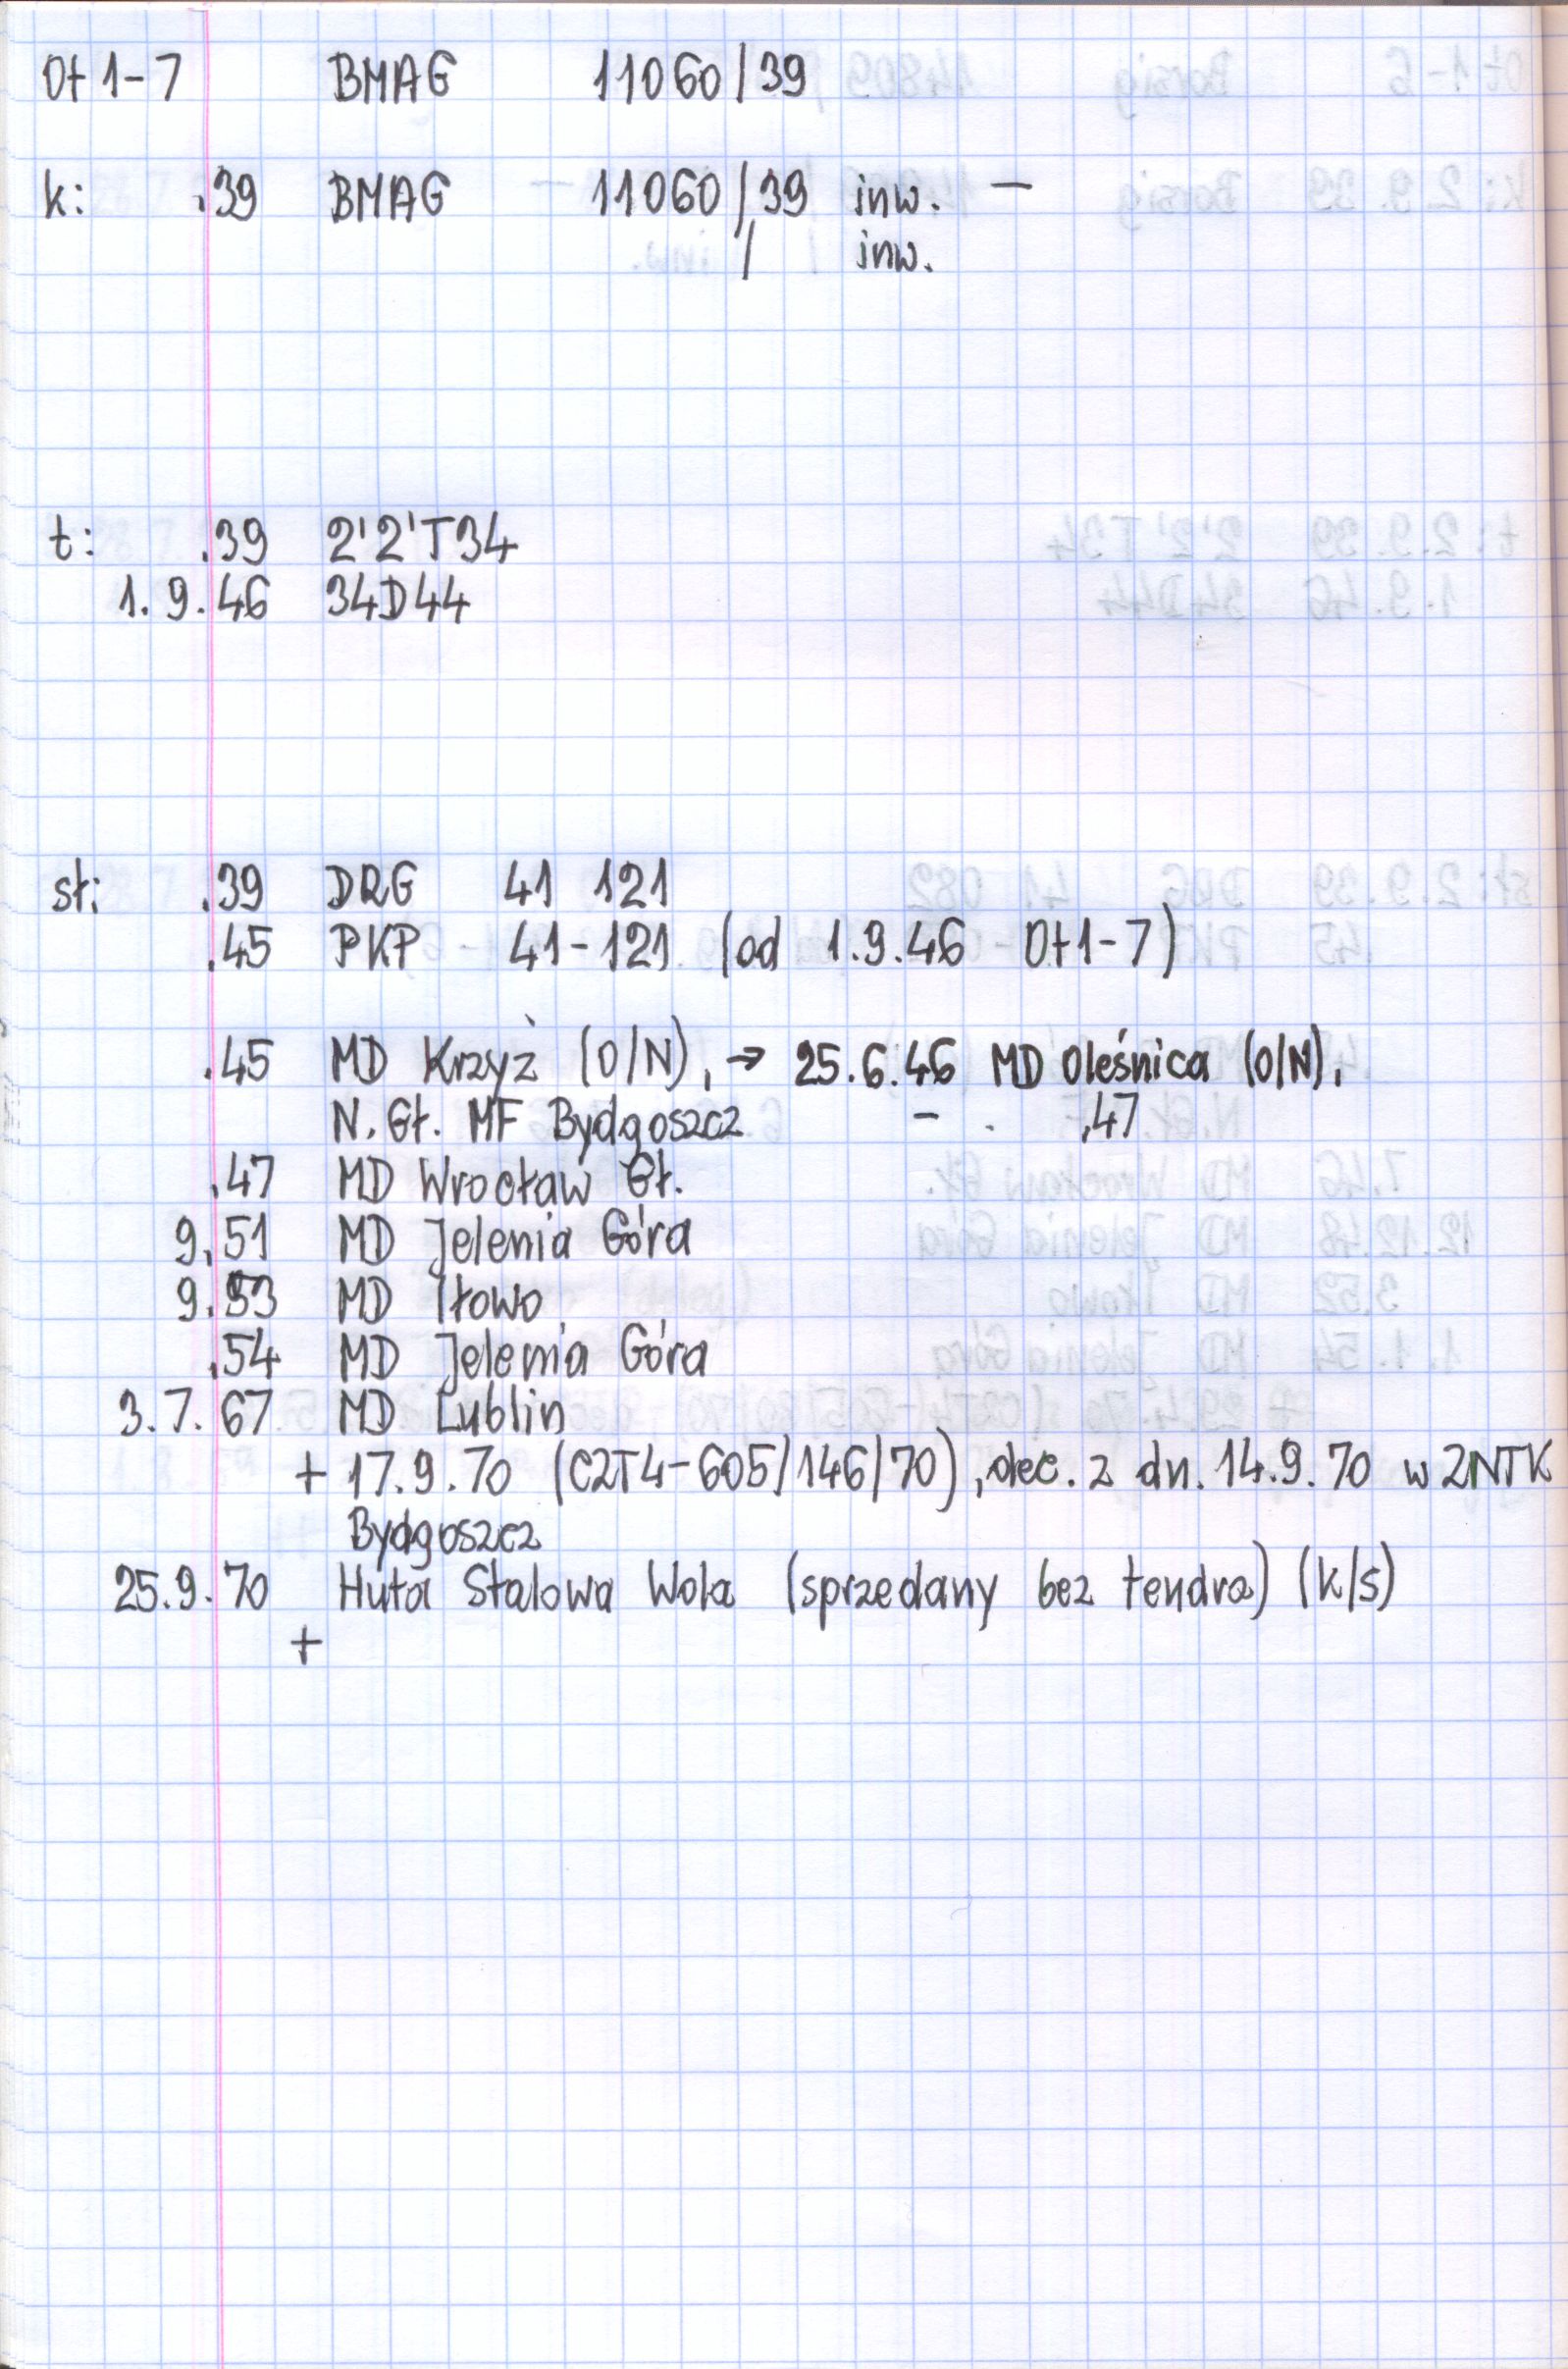 Ot1-7 BMAG 11060/39
k: .39 BMAG 11060/39 inw. —
/ inw.
t: .39 2'2'T34
1.9.46 34D44
st: .39 DRG 41 121
.45 PKP 41-121 (od 1.9.46 Ot1-7)
.45 MD Krzyż (O/N), → 25.6.46 MD Oleśnica (O/N),
N. Gł. MF Bydgoszcz – . .47
.47 MD Wrocław Gł.
9.51 MD Jelenia Góra
9.53 MD Iłowo
.54 MD Jelenia Góra
3.7.67 MD Lublin
+ 17.9.70 (C2T4-605/146/70), dec. z dn. 14.9.70 w ZNTK
Bydgoszcz
25.9.70 Huta Stalowa Wola (sprzedany bez tendra) (k/s)
+